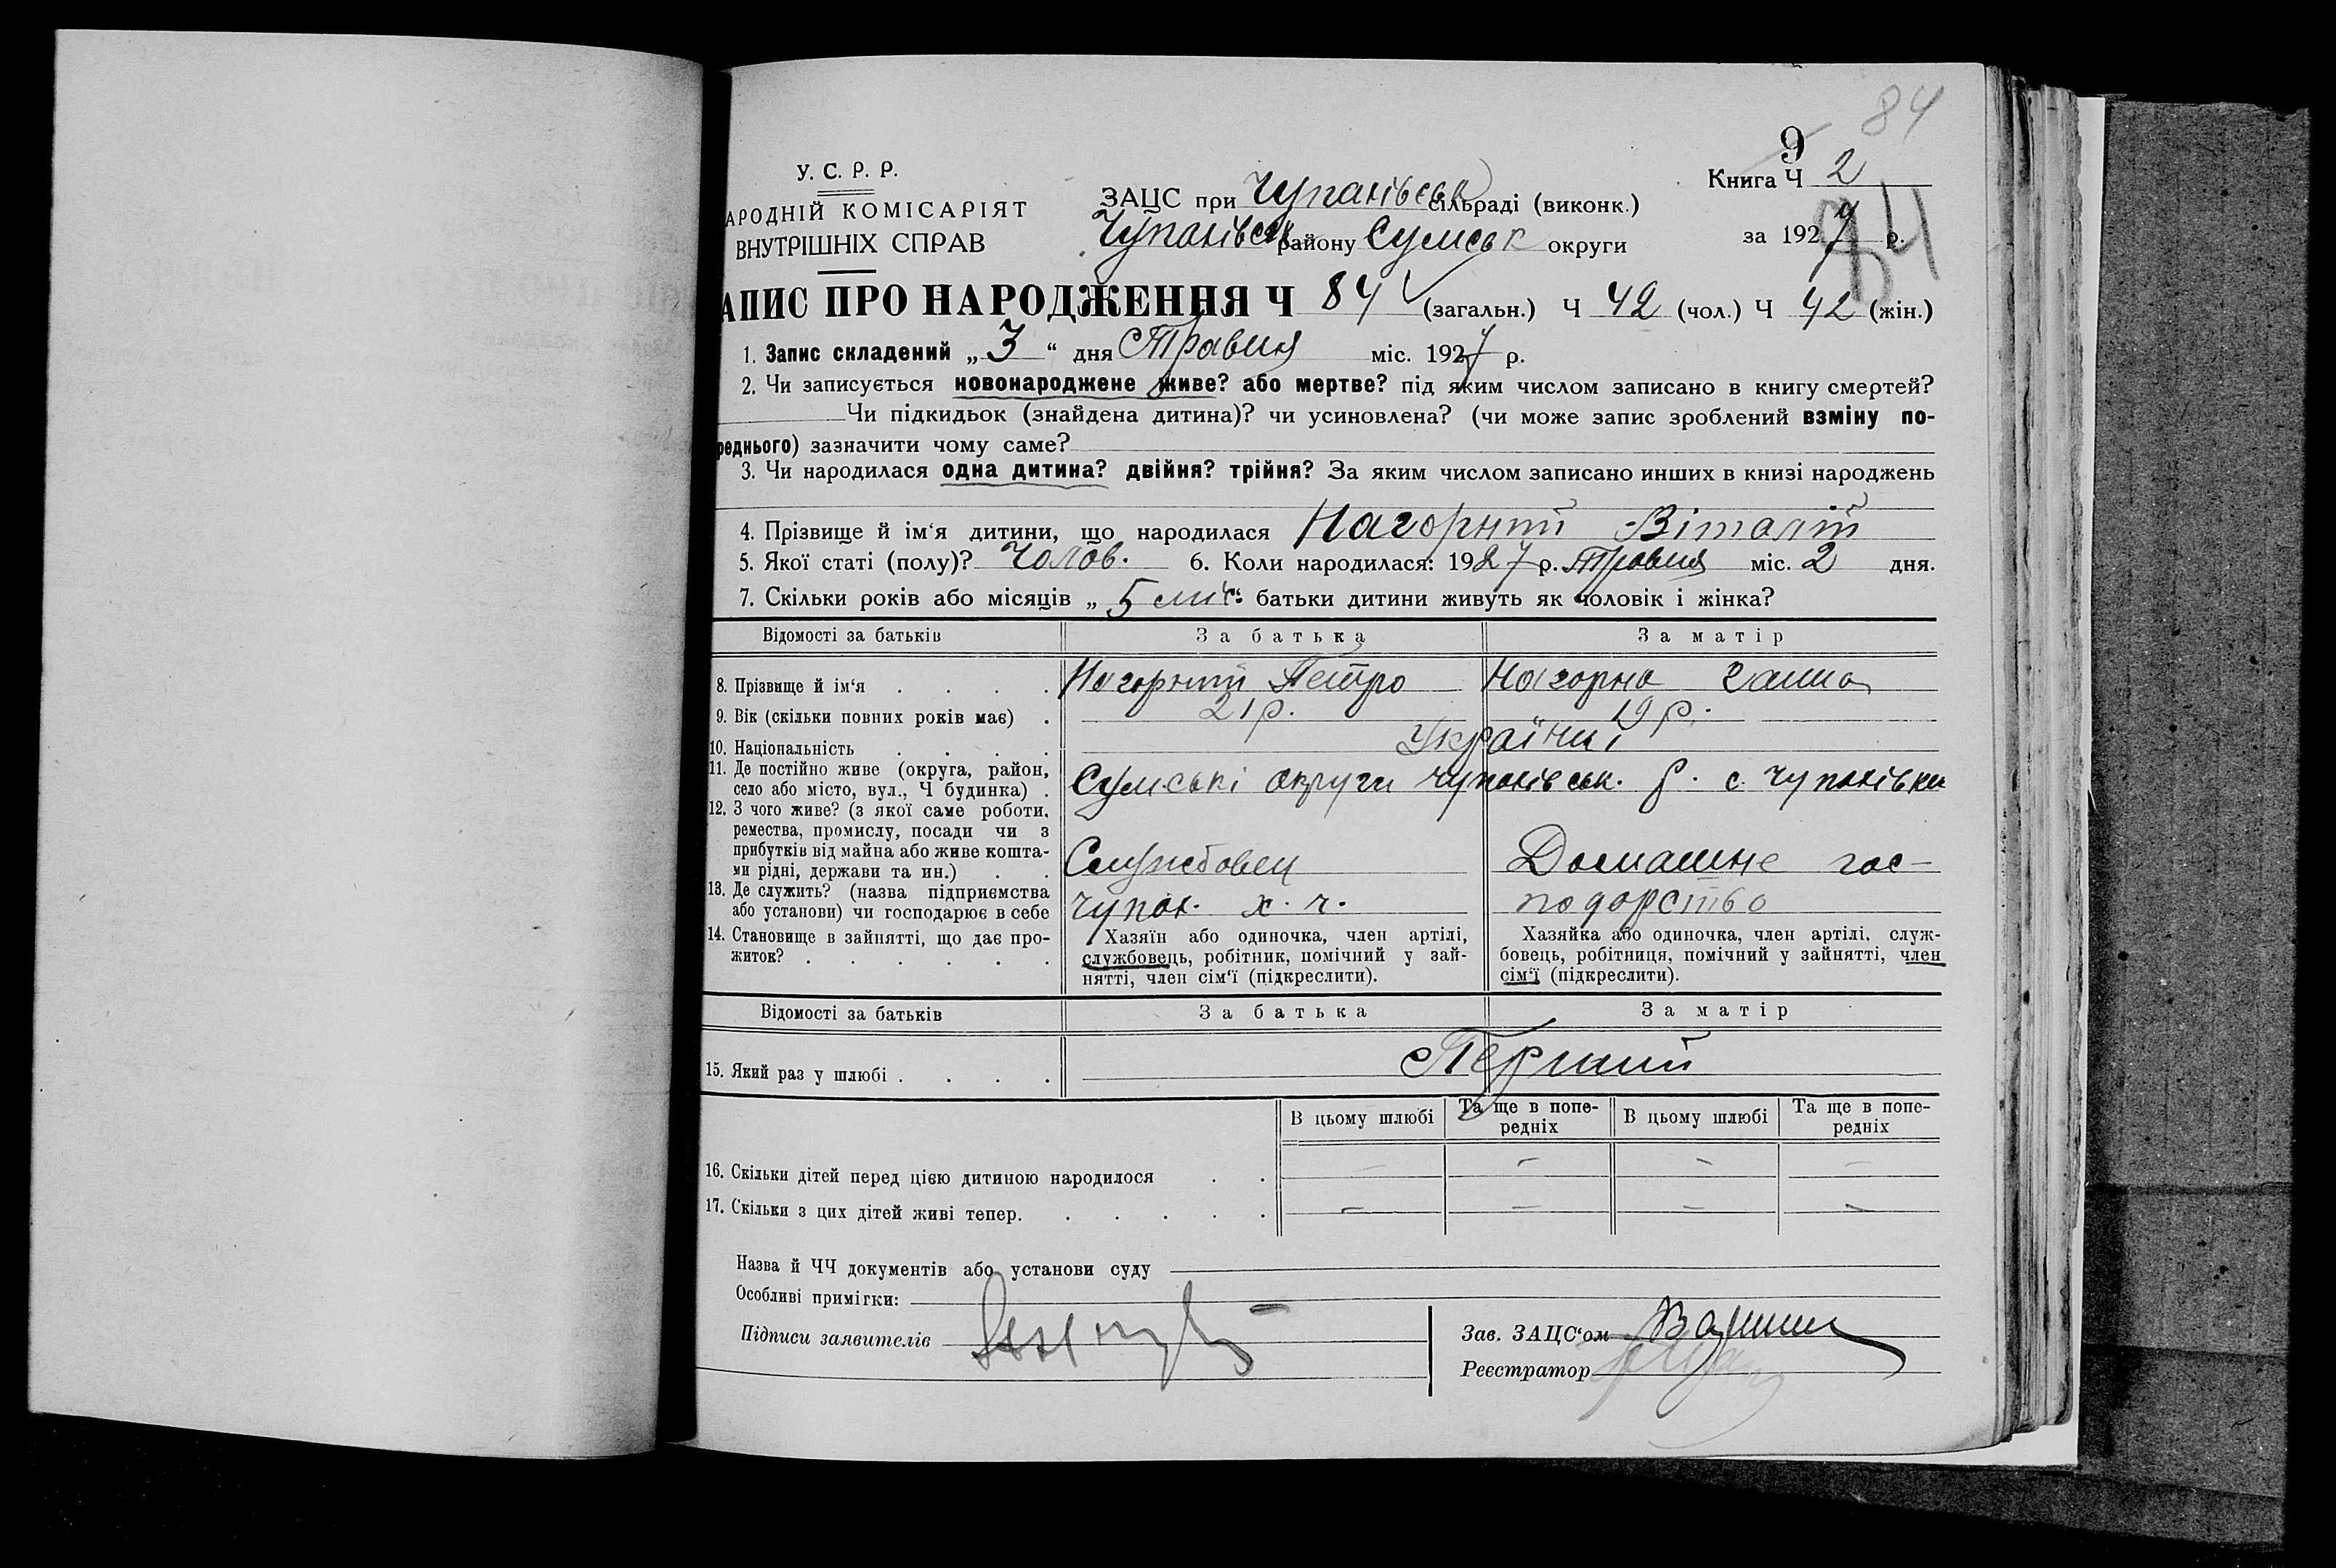 84
9
У. С. Р. Р.
Книга Ч 2
АРОДНІЙ КОМІСАРІЯТ
ВНУТРІШНІХ СПРАВ
ЗАЦС при Чупахівськ сільраді (виконк.)
Чупахівськ району Сумськ округи
за 1927 р.
84
АПИС ПРО НАРОДЖЕННЯ Ч 84 (загальн.) Ч 42 (чол.) Ч 42 (жін.)
1. Запис складений „ 3 “ дня Травня міс. 1927 р.
2. Чи записується новонароджене живе? або мертве? під яким числом записано в книгу смертей?
Чи підкидьок (знайдена дитина)? чи усиновлена? (чи може запис зроблений взміну по-
реднього) зазначити чому саме?
3. Чи народилася одна дитина? двійня? трійня? За яким числом записано инших в книзі народжень
4. Прізвище й ім‘я дитини, що народилася Нагорний Віталій
5. Якої статі (полу)? Чолов. 6. Коли народилася: 1927 р. Травня міс. 2 дня.
7. Скільки років або місяців „ 5 міс. батьки дитини живуть як чоловік і жінка?
Відомості за батьків За батька За матір
8. Прізвище й ім‘я . . . . Нагорний Петро Нагорна Ганна
9. Вік (скільки повних років має) . 21 р. 19 р.
10. Національність . . . . Українці
11. Де постійно живе (округа, район,
село або місто, вул., Ч будинка) . Сумські округи Чупахівськ. р. с. Чупахівки
12. З чого живе? (з якої саме роботи,
ремества, промислу, посади чи з
прибутків від майна або живе кошта-
ми рідні, держави та ин.) . . Службовец Домашнє гос-
13. Де служить? (назва підприємства
або установи) чи господарює в себе Чупах. х. ч. подарство
14. Становище в зайнятті, що дає про-
житок? . . . . . .
Хазяїн або одиночка, член артілі,
службовець, робітник, помічний у зай-
нятті, член сім‘ї (підкреслити).
Хазяйка або одиночка, член артілі, служ-
бовець, робітниця, помічний у зайнятті, член
сім‘ї (підкреслити).
Відомості за батьків За батька За матір
15. Який раз у шлюбі . . . . Перший
В цьому шлюбі Та ще в попе- В цьому шлюбі Та ще в попе-
редніх редніх
16. Скільки дітей перед цією дитиною народилося . . – – – –
17. Скільки з цих дітей живі тепер. . . . . . – – – –
Назва й ЧЧ документів або установи суду
Особливі примігки:
Підписи заявителів
Зав. ЗАЦС‘ом
Реєстратор